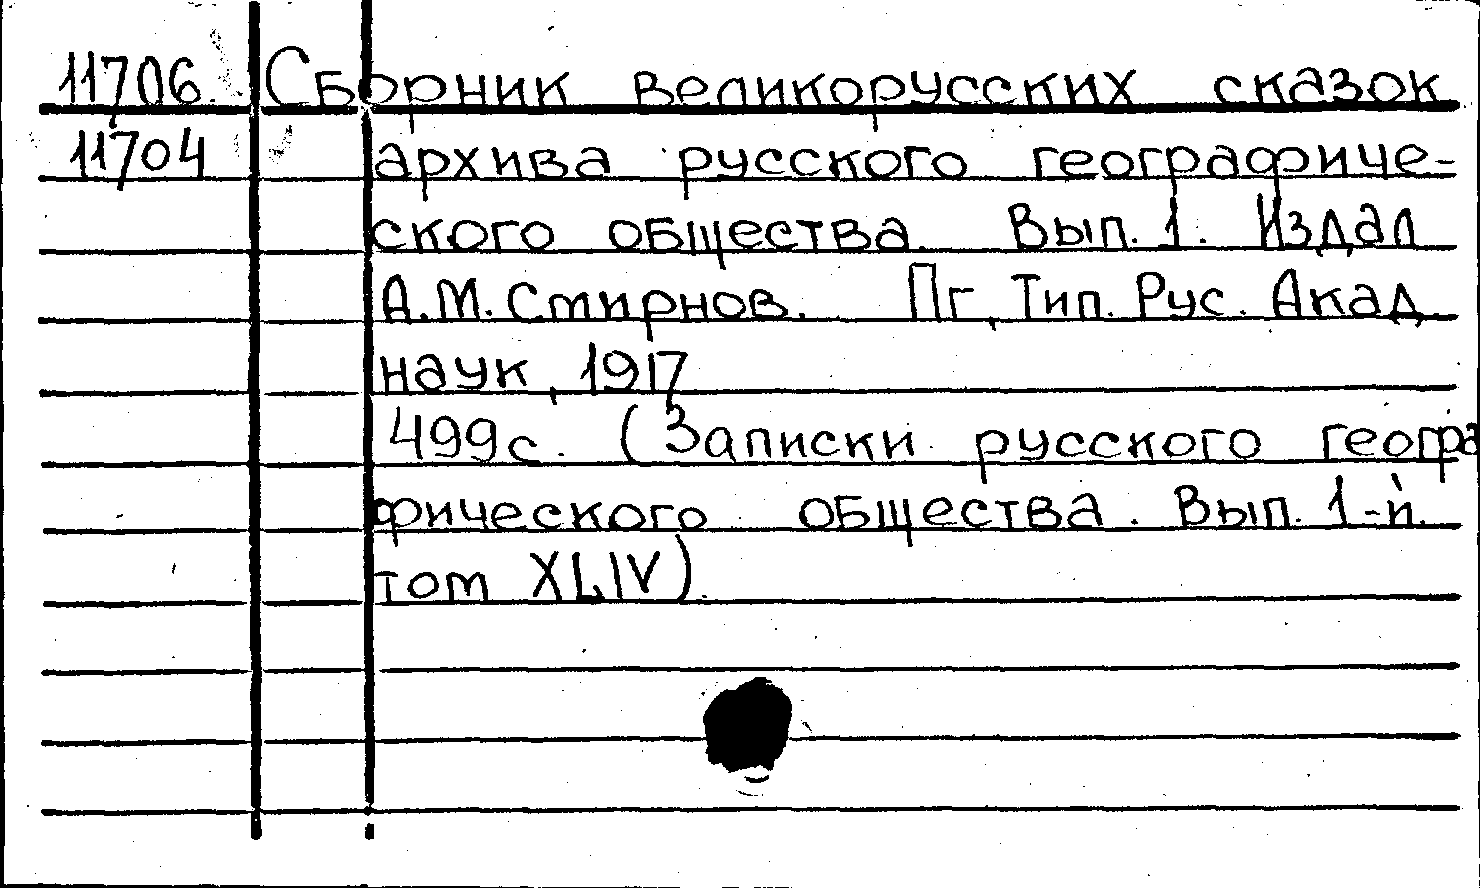 11706 Сборник великорусских сказок
11704 архива русского географиче-
ского общества. Вып. 1. Издал
А.М. Смирнов. Пг, Тип. Рус. Акад.
наук, 1917
499с. (Записки русского геогра
фического общества. Вып. 1-й.
том XLIV).